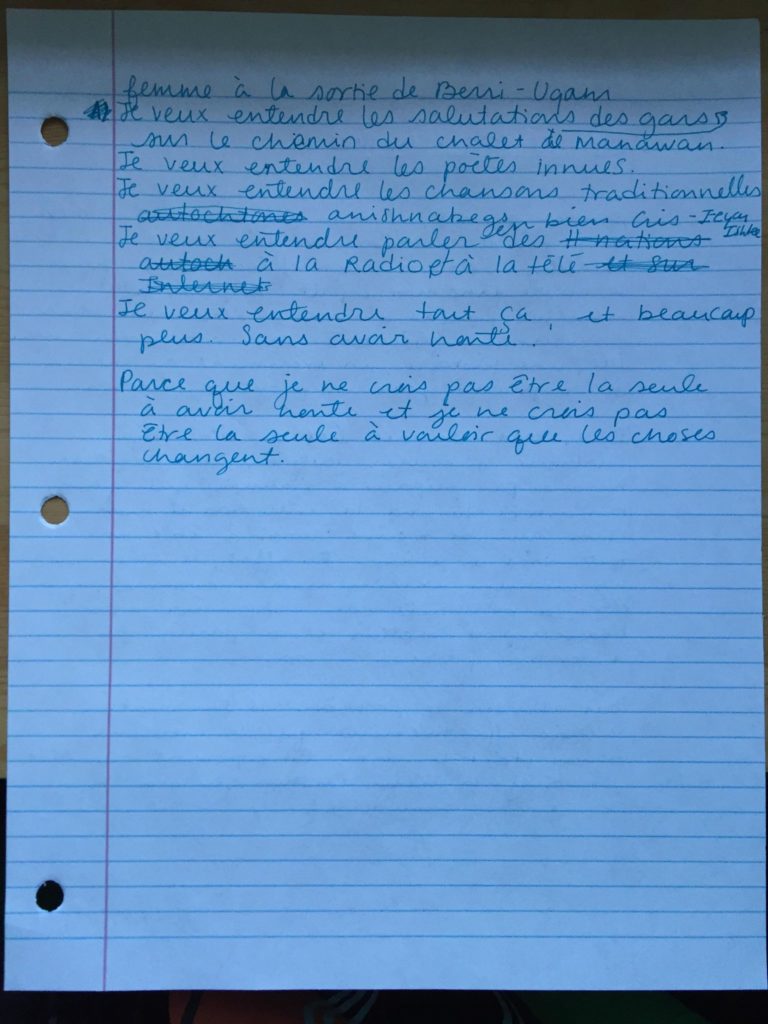 femme à la sortie de Berri-Uqam
Je veux entendre les salutations des gars
sur le chemin du chalet de Manawan.
Je veux entendre les poètes innues.
Je veux entendre les chansons traditionnelles
autochtones anishnabegs, bien cris -
Je veux entendre parler des # nations
autoch à la Radio et à la télé et sur
Internet
Je veux entendre tout ça, et beaucoup
plus. Sans avoir honte.
Parce que je ne crois pas être la seule
à avoir honte et je ne crois pas
être la seule à vouloir que les choses
changent.